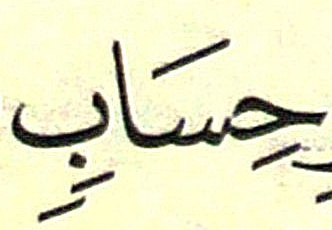 حِسَابِ